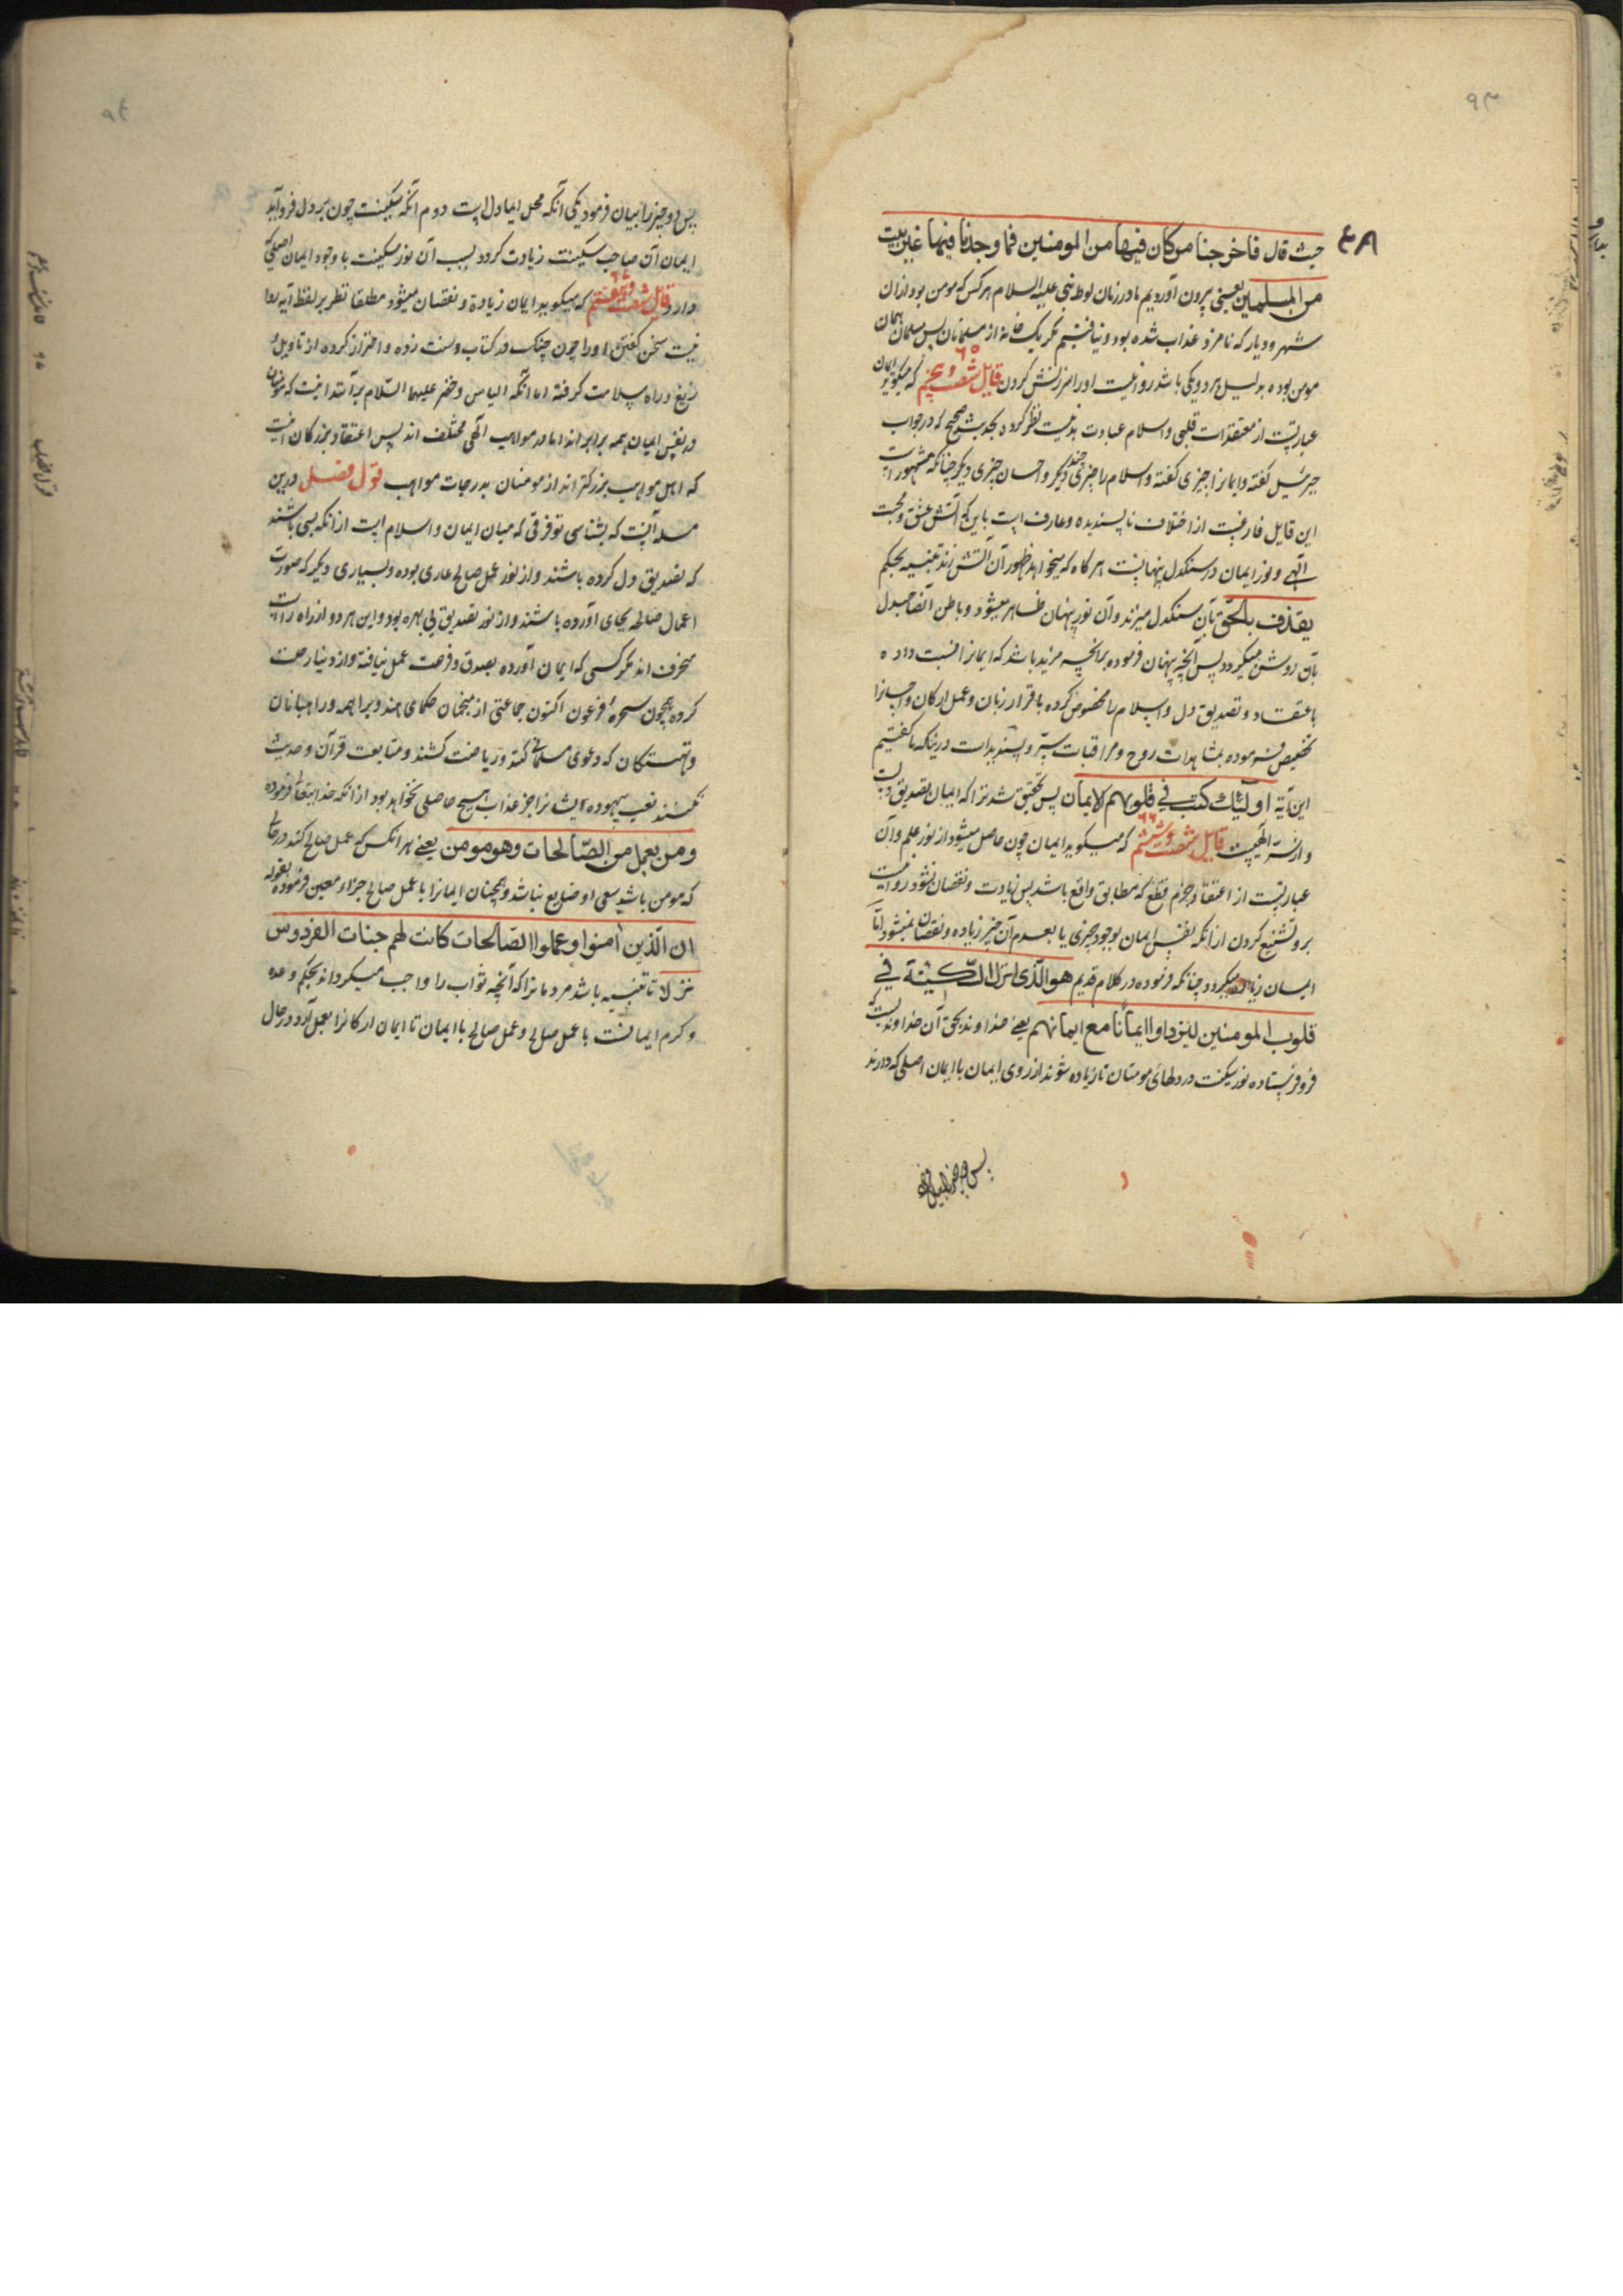 ۹۳
۴۸
حیث قال فاخرجنا من کان فیها من المومنین فما وجدنا فیها غیر بیت
من المسلمین یعنی بیرون آوردیم ما در زمان لوط نبی علیه السلام هر کس که مومن بود از ان
شهر و دیار که نامزد عذاب شده بود و نیافتیم مکر یک خانه از مسلمانان پس مسلمان همان
مومن بوده بدلیل هر دو یکی باشد روا نیست او را سرزنش کردن قایل شصت و پنجم که میکوید ایمان
عبارتست از معتقدات قلبی و اسلام عبادت بدنیست نظر کرده بحدیث صحیح که در جواب
جبرئیل کفته و ایمانرا چیزی کفته و اسلام را چیزی دیکر و احسان چیزی دیکر چنانکه مشهور است
این قایل فارغست از اختلاف ناپسندیده و عارف است باین که آتش عشق و محبت
الهی و نور ایمان در سنکدل پنهانست هر کاه که میخواهد ظهور آن آتش زند تنبیه بحکم
یقذف بالحق بآن سنکدل میزند و آن نور پنهان ظاهر میشود و باطن آنصاحبدل
بآن روشن میکردد پس آنچه پنهان فرموده برانچه مزید باشد که ایمانرا نسبت داده
باعتقاد و تصدیق دل و اسلام را مخصوص کرده باقرار زبان و عمل ارکان و احسانرا
تخصیص فرموده بمشاهدات روح و مراقبات سر و پسندیداست درینکه ما کفتیم
این آیة اولئک کتب فی قلوبهم الایمان پس تحقیق شد ترا که ایمان تصدیق دلست
و از سر الهیست قایل شصت و ششم که میکوید ایمان چون حاصل میشود از نور علم و آن
عبارتست از اعتقاد جزم قطع که مطابق واقع باشد پس زیادت و نقصان نشود روا نیست
برو تشنیع کردن ازانکه نفس ایمان بوجود چیزی یا بعدم آن چیز زیاده و نقصان نمیشود اما
ایمان زیاده میکردد چنانکه فرموده در کلام قدیم هو الذی انزل السکینة فی
قلوب المومنین لیزدادوا ایمانا مع ایمانهم یعنی خداوند بحق آن خداوندیست که
فرو فرستاده نور سکینت در دلهای مومنان تا زیاده شوند از روی ایمان با ایمان اصلی که دارند
پس دو چیز را بیان
۹۴
پس دو چیز را بیان فرمود یکی آنکه محل ایمان دل است دوم آنکه سکینت چون بر دل فرو آید
ایمان آن صاحب سکینت زیادت کردد بسبب آن نور سکینت با وجود ایمان اصلی که
دارد قایل شصت و هفتم که میکوید ایمان زیادة و نقصان میشود مطلقا نظر بر لفظ آیه روا
نیست سخن کفتن او را چون چنک در کتاب و سنت زده و احتراز کرده از تاویل و
زیغ و راه سلامت کرفته اما آنکه الیاس و خضر علیهما السلام برآنند اینست که مومنان
در نفس ایمان همه برابر اند اما در مواهب الهی مختلف اند پس اعتقاد بزرکان اینست
که اهل مواهب بزرکتر اند از مومنان بدرجات مواهب قول فصل درین
مسله آنست که بشناسی تو فرقی که میان ایمان و اسلام است ازانکه بسی باشند
که تصدیق دل کرده باشند و از نور عمل صالح عاری بوده و بسیاری دیکر که صورت
اعمال صالحه بجای آورده باشند و از نور تصدیق بی بهره بود و این هر دو از راه راست
منحرف اند مکر کسی که ایمان آورده بصدق و فرصت عمل نیافته و از دنیا رحلت
کرده همچون سحرهٔ فرعون اکنون جماعتی از منجمان حکمای هند و براهمه و راهبانان
که دعوی مسلمانی کنند و ریاضت کشند و متابعت قرآن و حدیث
نکنند تعب بیهوده ایشانرا جز عذاب هیچ حاصلی نخواهد بود ازانکه خدایتعالی فرموده
ومن یعمل من الصالحات وهو مومن یعنی هر انکس که عمل صالح کند در حالی
که مومن باشد سعی او ضایع نباشد و همچنان ایمانرا با عمل صالح جزاء معین فرموده بقوله
ان الذین آمنوا وعملوا الصالحات کانت لهم جنات الفردوس
نزلا تا تنبیه باشد مردمانرا که آنچه ثواب را واجب میکرداند بحکم وعده
و کرم ایمانست با عمل صالح و عمل صالح با ایمان تا ایمان ارکانرا بعمل آرد در حال